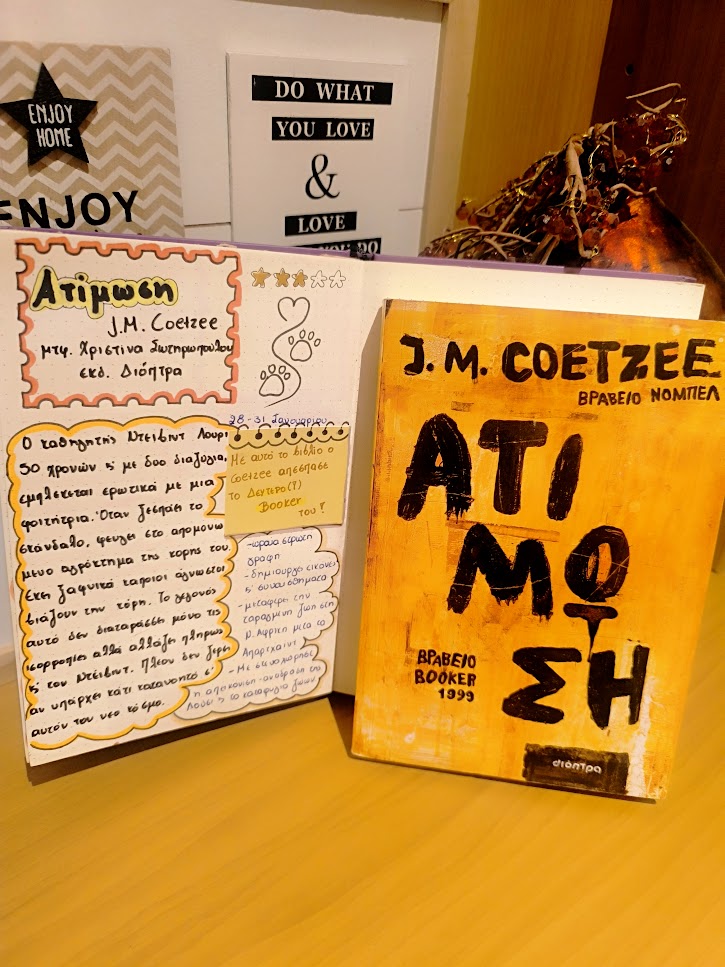 ENJOY
HOME
ENJOY
DO WHAT
YOU LOVE
&
LOVE
YOU DO
Ατίμωση
J.M. Coetzee
μτφ. Χριστίνα Σωτηροπούλου
εκδ. Διόπτρα
Ο καθηγητής Ντέιβιντ Λούρι
50 χρονών κ' με δύο διαζύγια,
εμπλέκεται ερωτικά με μια
φοιτήτρια. Όταν ξεσπάει το
σκάνδαλο, φεύγει στο απομονω
μένο αγρόκτημα της κόρης του.
Εκεί ξαφνικά κάποιοι άγνωστοι
βιάζουν την κόρη. Το γεγονός
αυτό δεν διαταράσσει μόνο τις
ισορροπίες αλλά αλλάζει πλήρως
κ' τον Ντέιβιντ. Πλέον δεν ξέρει
αν υπάρχει κάτι κατανοητό σ'
αυτόν τον νέο κόσμο.
28-31 Ιανουαρίου
Με αυτό το βιβλίο ο
Coetzee απέσπασε
το Δεύτερο(?)
Booker
του!
-ωραία στρωτή
γραφή
-δημιουργεί εικόνες
κ' συναισθήματα
-μεταφέρει την
ταραγμένη ζωή στη
Ν. Αφρική μετά το
Απαρχάιντ
-Με στεναχώρησε
η απεικόνιση
Λούσι κ' το καταφύγιο ζώων
J. M. COETZEE
ΒΡΑΒΕΙΟ ΝΟΜΠΕΛ
ΑΤΙ
ΜΩ
ΣΗ
ΒΡΑΒΕΙΟ
BOOKER
1999
διόπτρα